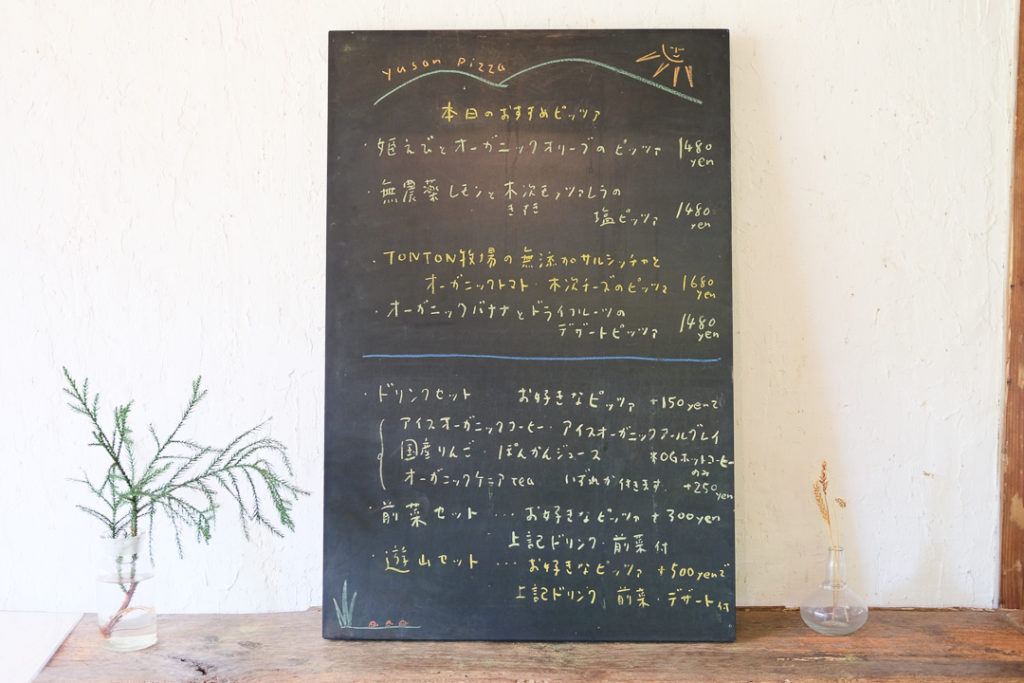 yusan pizza
本日のおすすめピッツァ
・姫えびとオーガニックオリーブのピッツァ 1480 yen
・無農薬レモンと木次モッツァレラの
きすき
塩ピッツァ 1480 yen
・TONTON牧場の無添加サルシッチャと
オーガニックトマト・木次チーズのピッツァ 1680 yen
・オーガニックバナナとドライフルーツの
デザートピッツァ 1480 yen
・ドリンクセット お好きなピッツァ +150yenで
アイスオーガニックコーヒー・アイスオーガニックアールグレイ
国産りんご・ぽんかんジュース ※OGホットコーヒー
のみ
オーガニックケニアtea いずれか付きます. +250yen
・前菜セット … お好きなピッツァ +300yen
上記ドリンク・前菜付
・遊山セット … お好きなピッツァ +500yenで
上記ドリンク, 前菜・デザート付